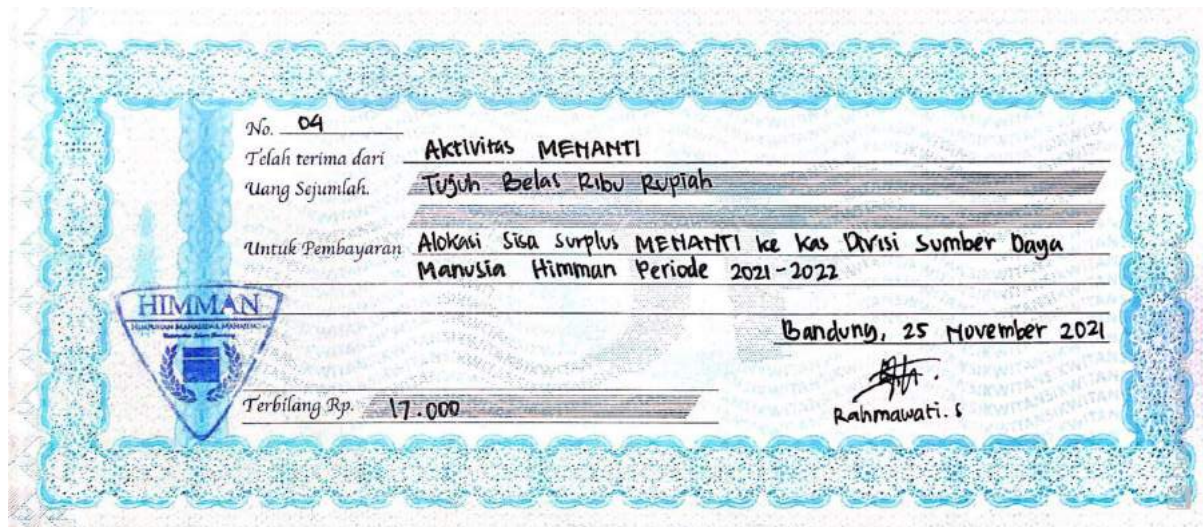 No. 04
Telah terima dari Aktivitas MENANTI
Uang Sejumlah. Tujuh Belas Ribu Rupiah
Untuk Pembayaran Alokasi Sisa Surplus MENANTI ke Kas Divisi Sumber Daya
Manusia Himman Periode 2021-2022
HIMMAN
HIMPUNAN MAHASISWA MANAJEMEN
Bandung, 25 November 2021
Terbilang Rp. 17.000
Rahmawati. S